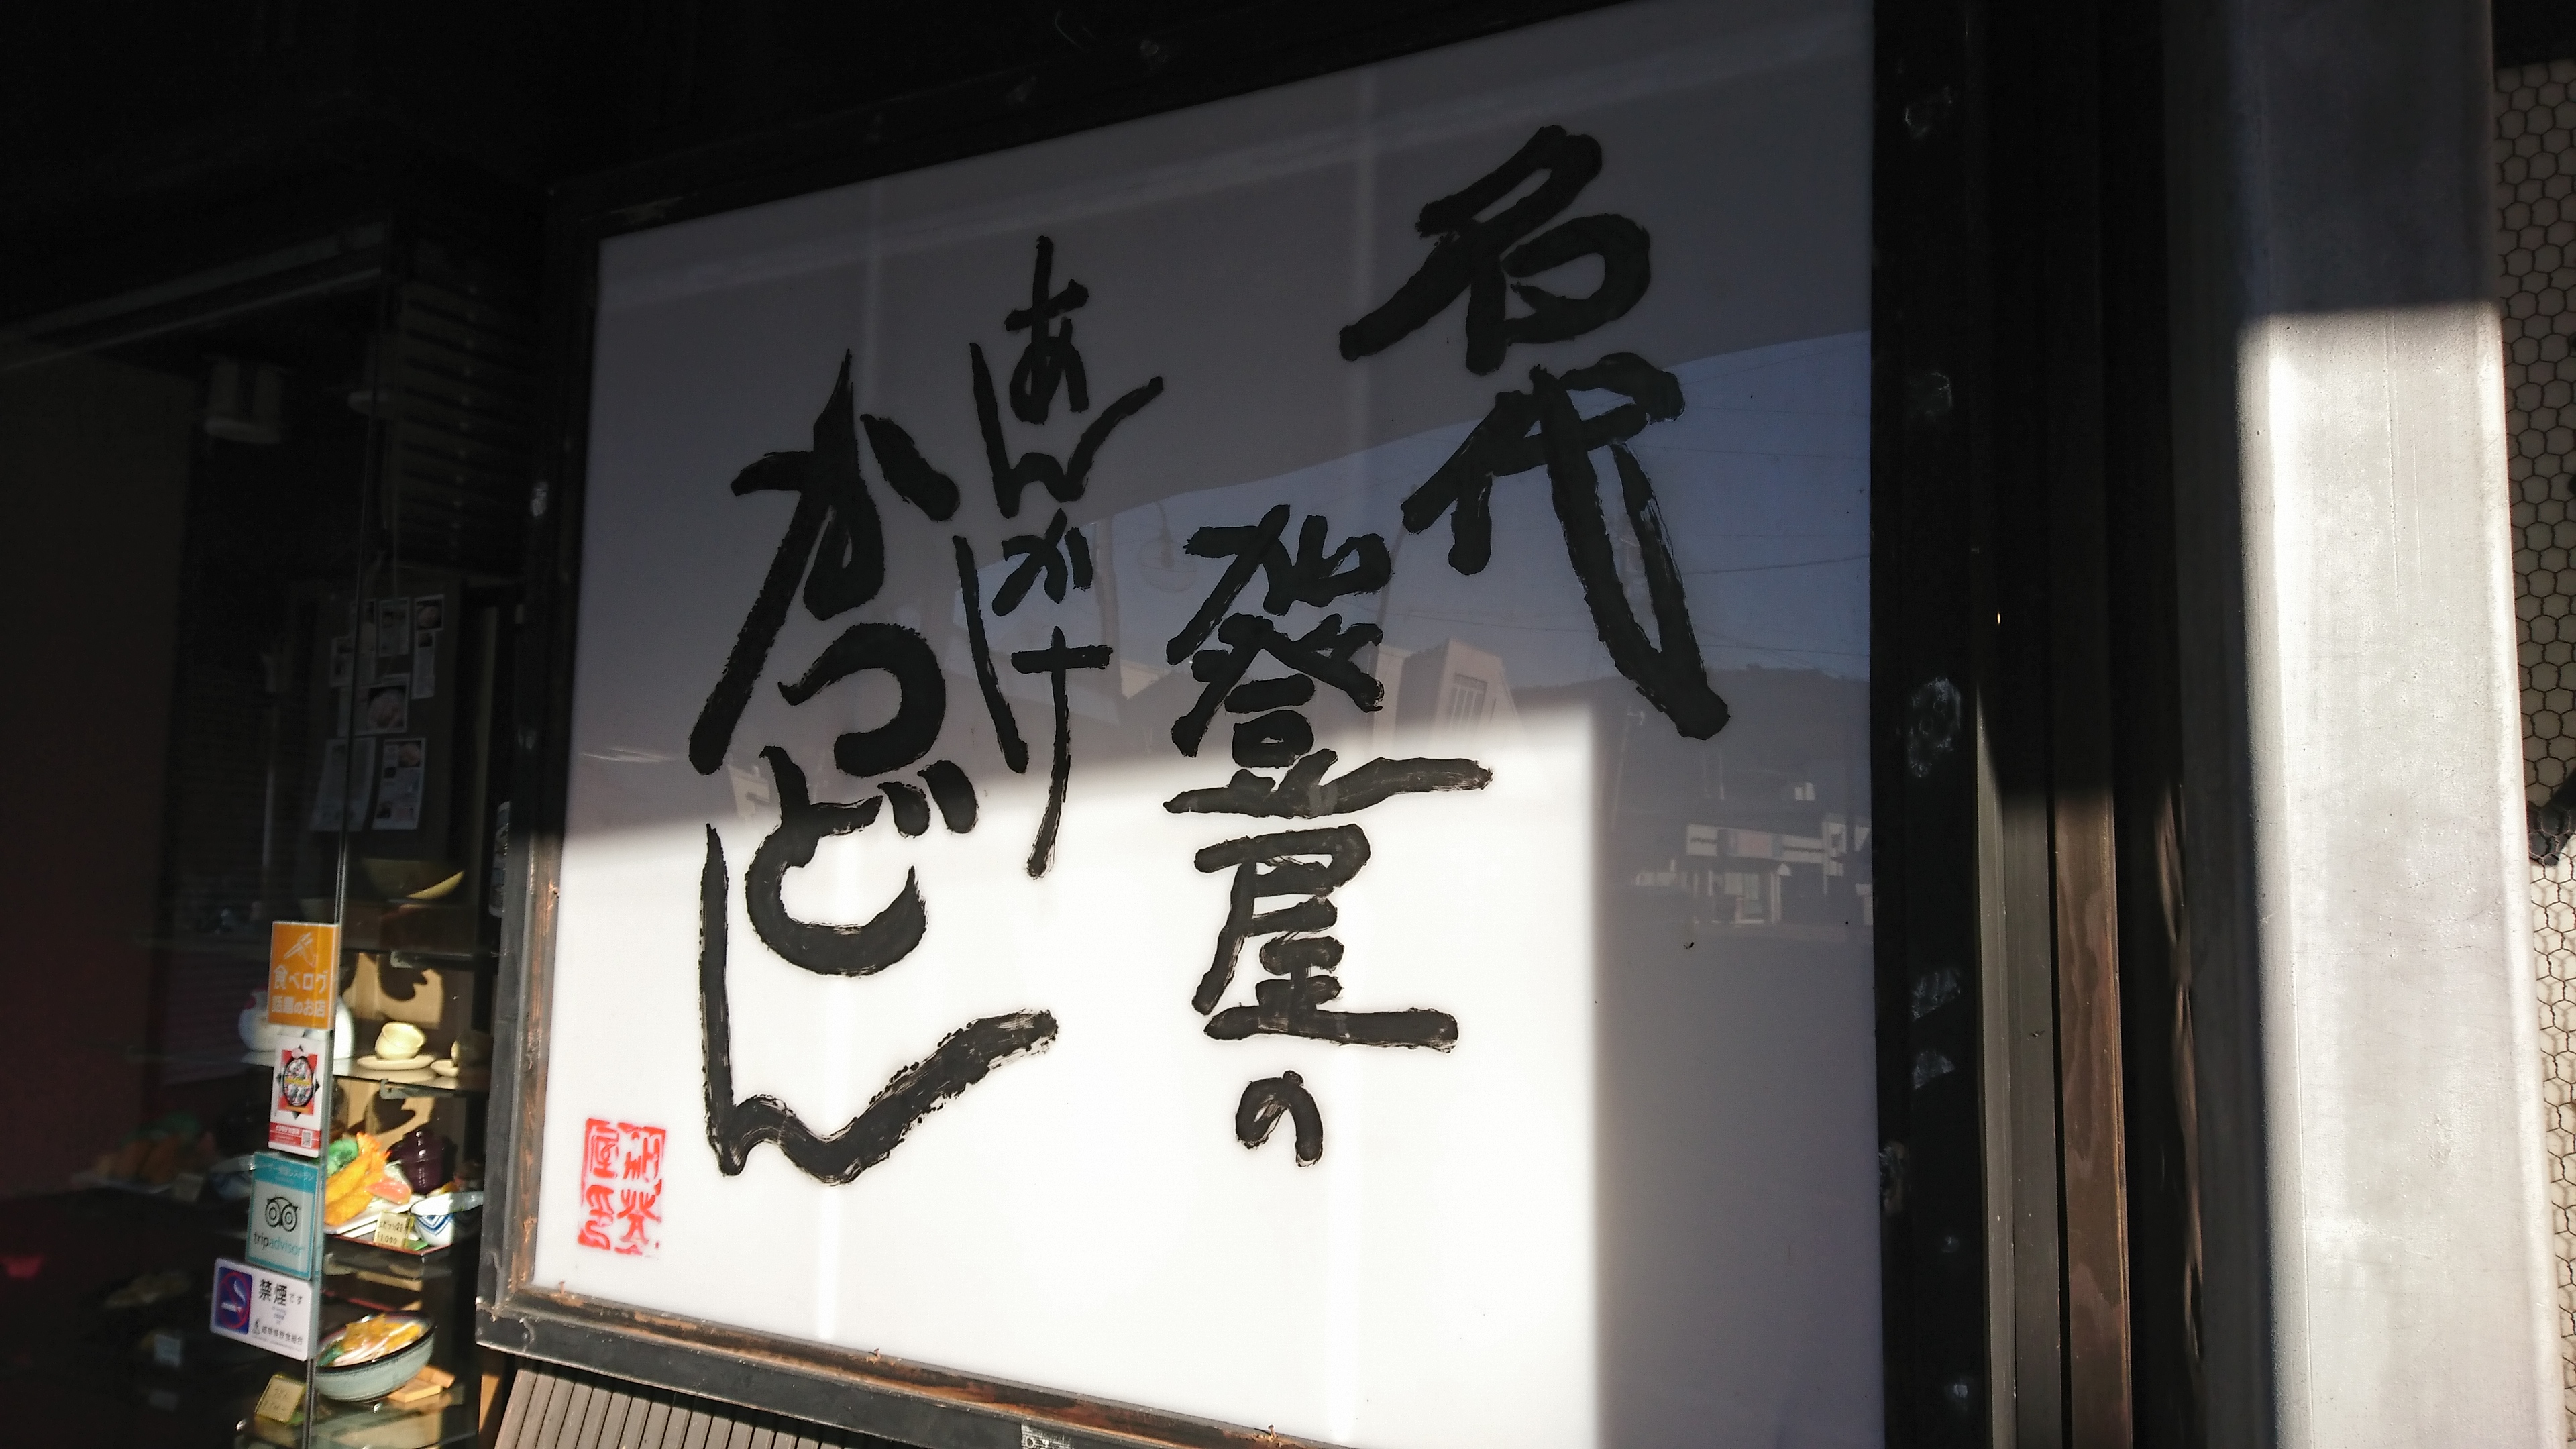 名代
加登屋の
あんかけ
かつどん
食べログ
話題のお店
tripadvisor
禁煙です